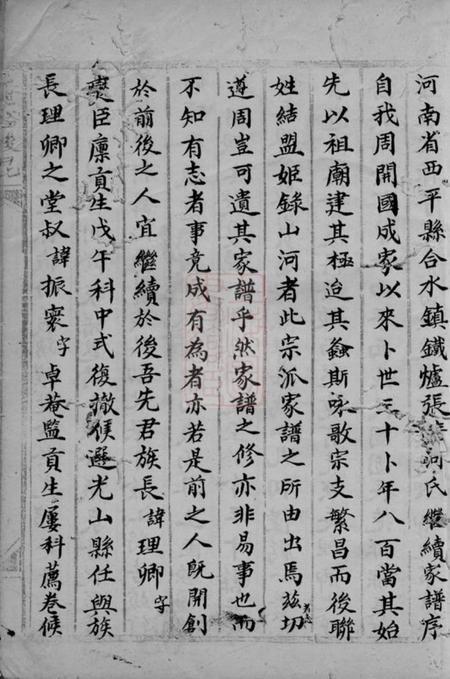 河南省西平縣合水鎮鐵爐張訶氏繼續家譜序
自我周開國成家以來卜世三十卜年八百當其始
先以祖廟建其極迨其螽斯咏歌宗支繁昌而後聯
姓結盟姬錄山河者此宗派家譜之所由出焉茲切
遵周豈可遺其家譜乎然家譜之修亦非易事也而
不知有志者事竟成有為者亦若是前之人旣開創
於前後之人宜繼續於後吾先君族長諱理卿字
燮臣廪貢生戊午科中式復撤候選光山縣任與族
長理卿之堂叔諱振寰字卓菴監貢生屢科薦卷候